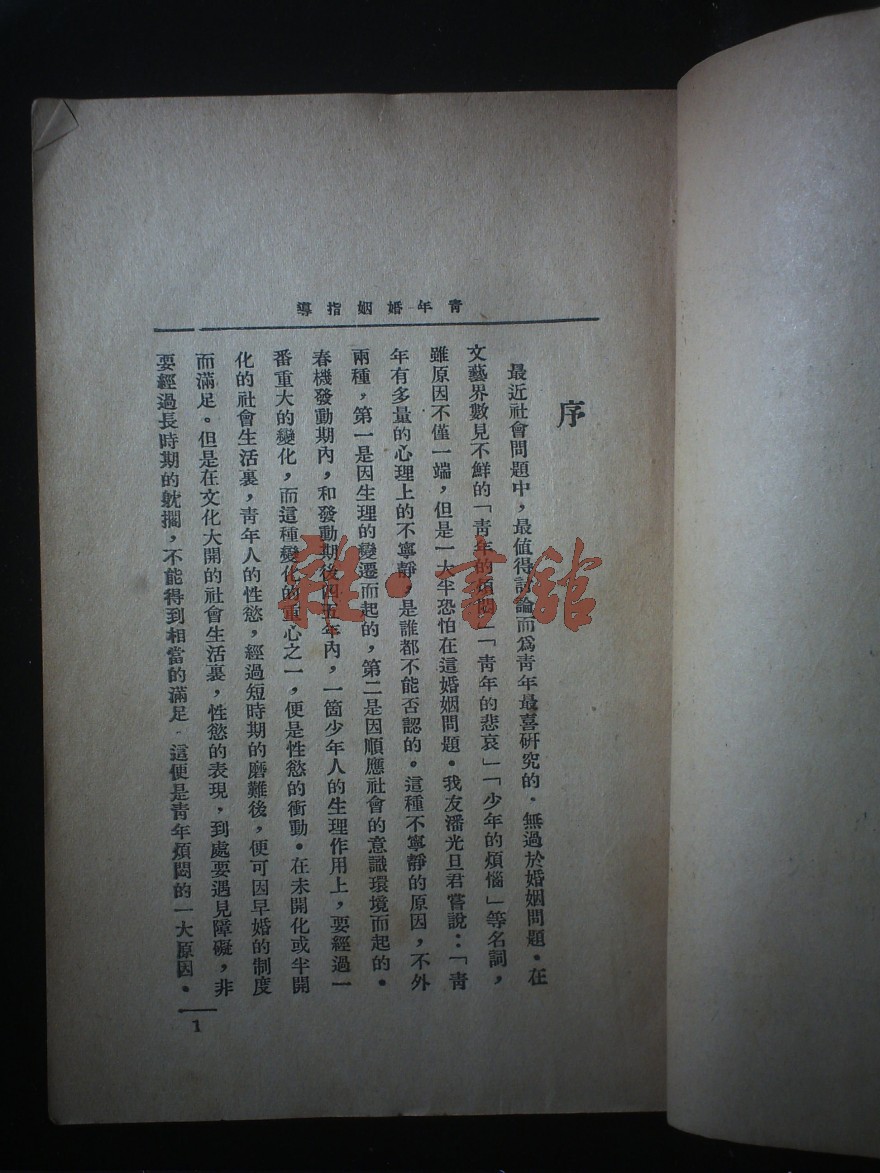 青年婚姻指導
序
最近社會問題中，最值得討論而爲青年最喜研究的．無過於婚姻問題。在
文藝界數見不鮮的「青年的煩悶」「青年的悲哀」「少年的煩惱」等名詞，
雖原因不僅一端，但是一大半恐怕在這婚姻問題。我友潘光旦君嘗說：「青
年有多量的心理上的不寧靜，是誰都不能否認的。這種不寧靜的原因，不外
兩種，第一是因生理的變遷而起的，第二是因順應社會的意識環境而起的。
春機發動期內，和發動期後四五年內，一箇少年人的生理作用上，要經過一
番重大的變化，而這種變化的重心之一，便是性慾的衝動。在未開化或半開
化的社會生活裏，青年人的性慾，經過短時期的磨難後，便可因早婚的制度
而滿足。但是在文化大開的社會生活裏，性慾的表現，到處要遇見障礙，非
要經過長時期的躭擱，不能得到相當的滿足　這便是青年煩悶的一大原因。
1
雜·書館